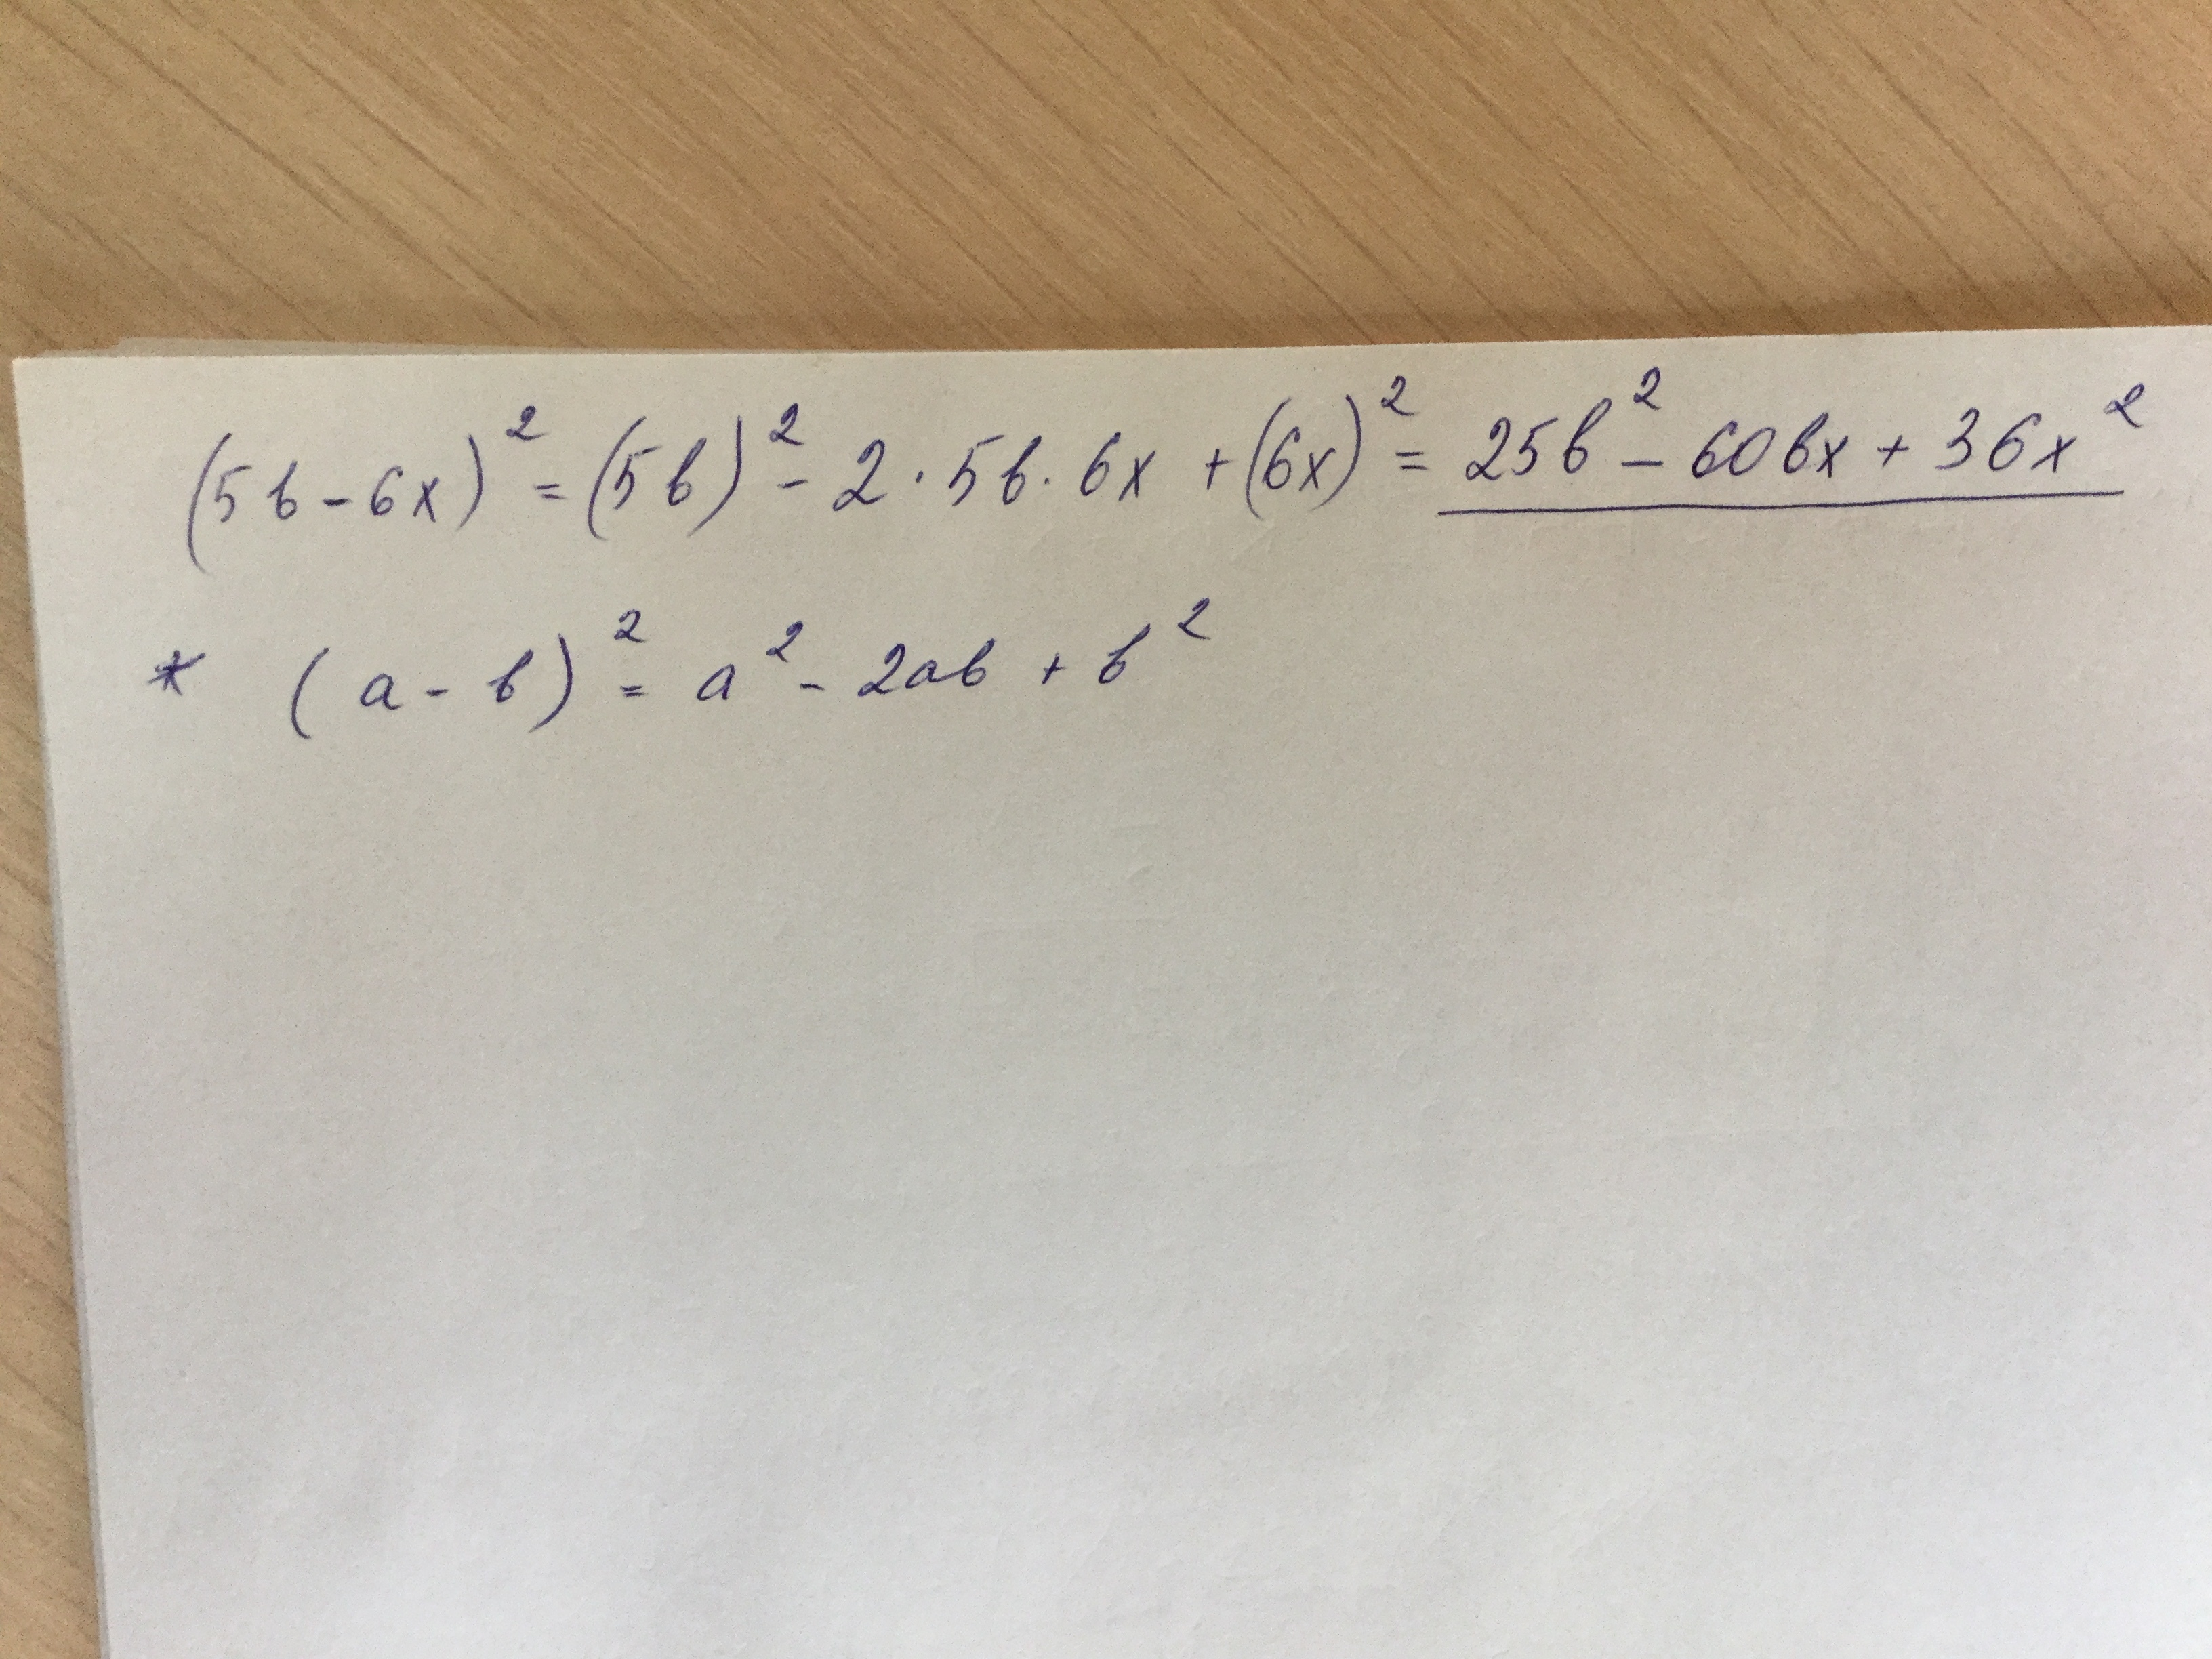 (5b-6x)² = (5b)² - 2·5b·6x + (6x)² = 25b² - 60bx + 36x²
* (a - b)² = a² - 2ab + b²